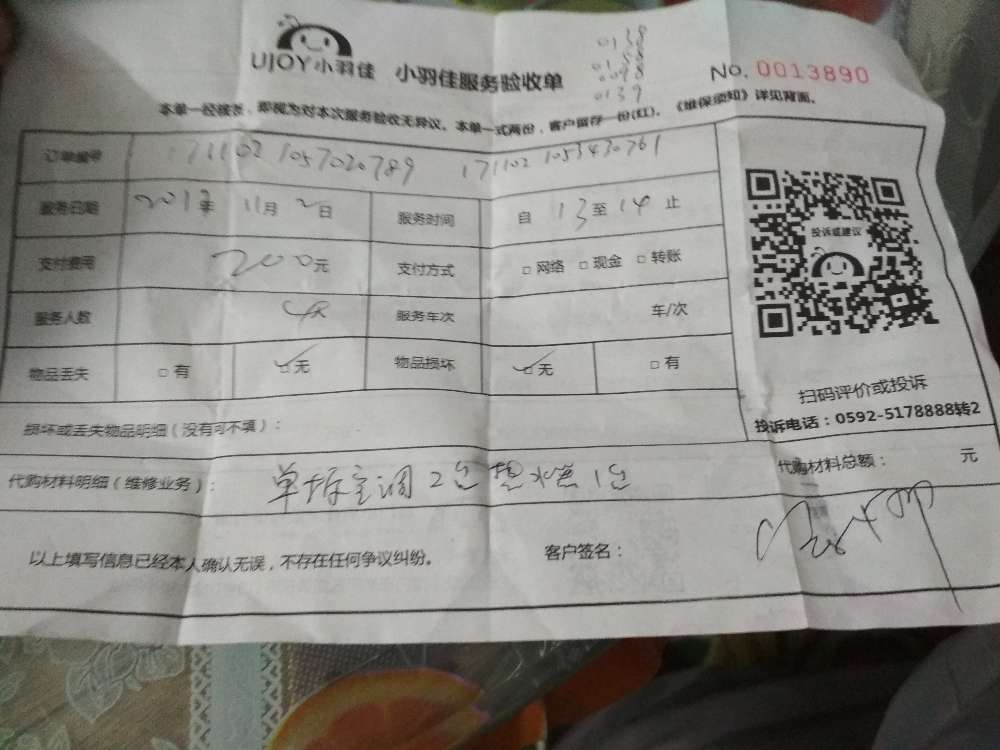 UJOY小羽佳 小羽佳服务验收单
0138
0158
0098
0139
No. 0013890
本单一经签发，即视为对本次服务验收无异议。本单一式两份，客户留存一份(红)。《维保须知》详见背面。
订单编号 171102 1057020789 171102 1053430761
服务日期 2017年 11月 2日 服务时间 自 13 至 14 止
支付费用 200元 支付方式 □ 网络 □ 现金 □ 转账
服务人数 服务车次 车/次
物品丢失 □ 有 ☑无 物品损坏 ☑无 □ 有
投诉或建议
扫码评价或投诉
投诉电话：0592-5178888转2
损坏或丢失物品明细（没有可不填）：
代购材料明细（维修业务）： 单拆空调2台 热水器1台 代购材料总额： 元
以上填写信息已经本人确认无误，不存在任何争议纠纷。 客户签名：